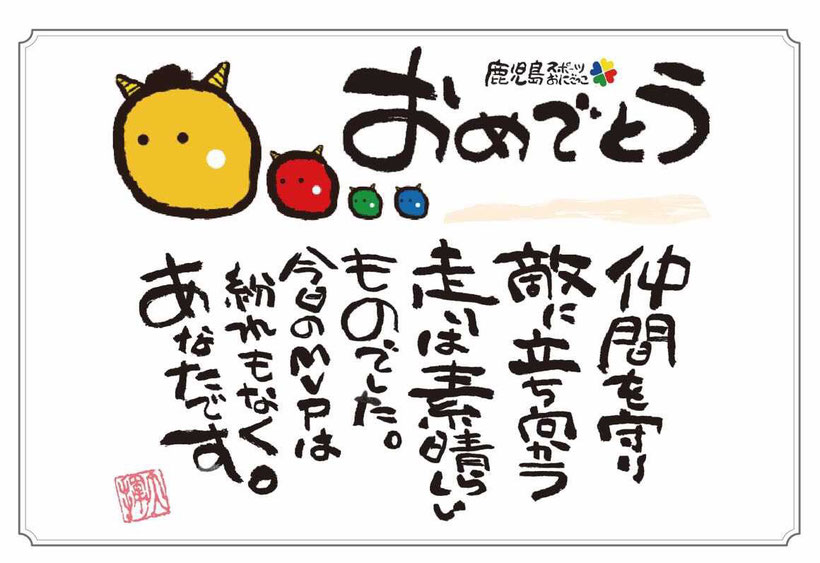 鹿児島
スポーツ
おにごっこ
おめでとう
仲間を守り
敵に立ち向かう
走りは素晴らしい
ものでした。
今日のMVPは
紛れもなく。
あなたです